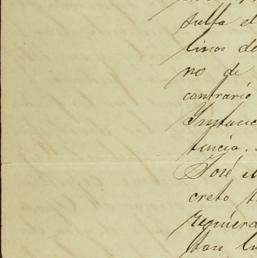 sulta el
linos de
no de
contrario
Instanc
tincia.
José M
creto
requiera